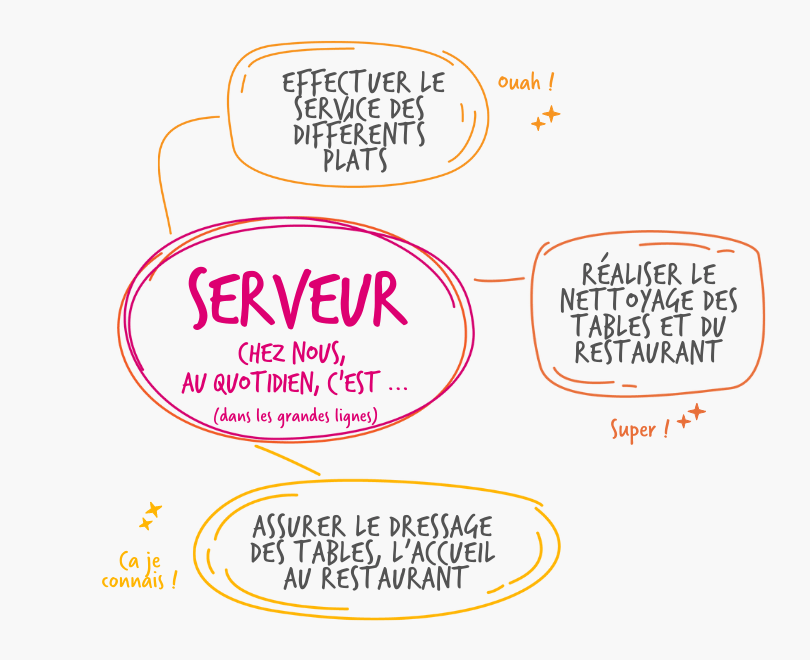 EFFECTUER LE
SERVICE DES
DIFFÉRENTS
PLATS
Ouah !
SERVEUR
CHEZ NOUS,
AU QUOTIDIEN, C'EST ...
(dans les grandes lignes)
RÉALISER LE
NETTOYAGE DES
TABLES ET DU
RESTAURANT
Super !
ASSURER LE DRESSAGE
DES TABLES, L'ACCUEIL
AU RESTAURANT
Ca je
connais !